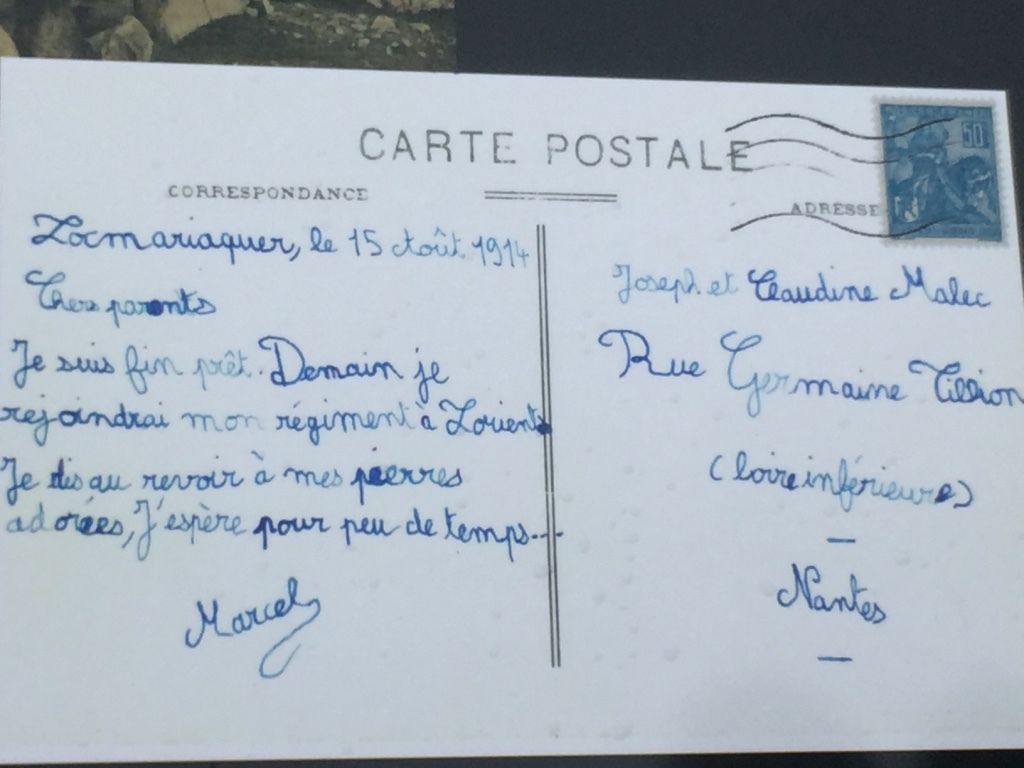 CARTE POSTALE
CORRESPONDANCE
ADRESSE
50
Locmariaquer, le 15 Août 1914
Chers parents
Je suis fin prêt. Demain je
rejoindrai mon régiment à Lorient
Je dis au revoir à mes pierres
adorées, J'espère pour peu de temps...
Marcel
Joseph et Claudine Malec
Rue Germaine Tillion
(loire inférieure)
Nantes